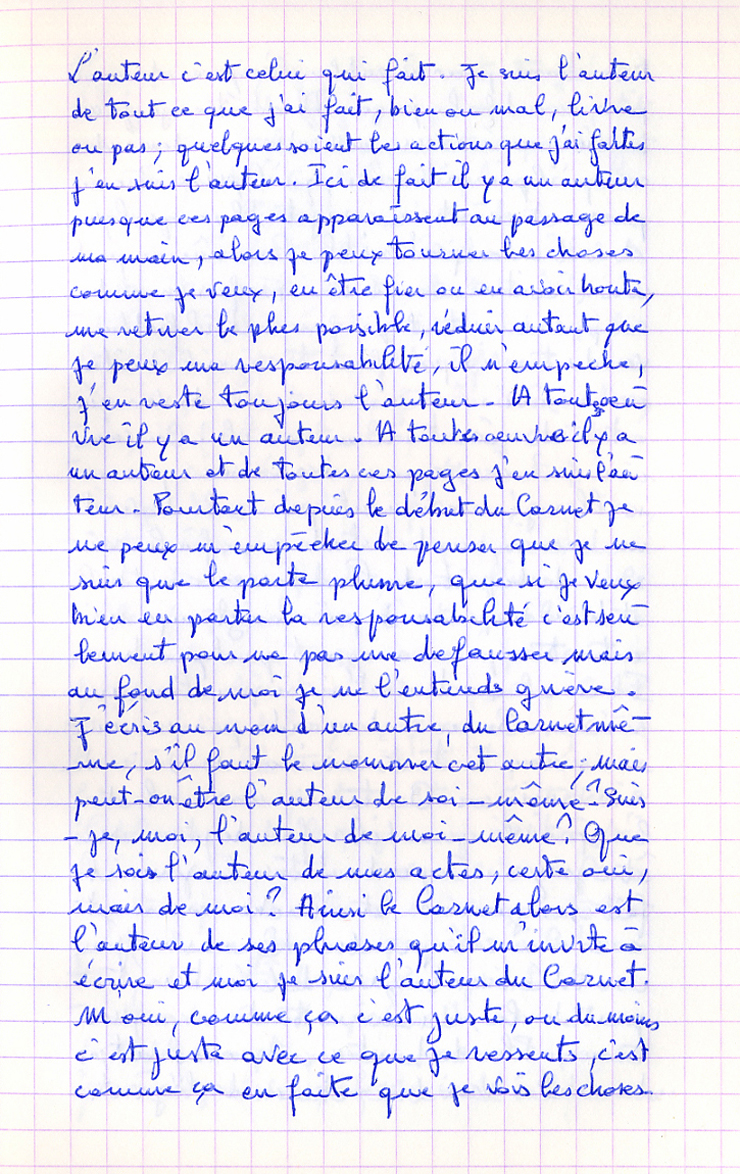 L'auteur c'est celui qui fait. Je suis l'auteur
de tout ce que j'ai fait, bien ou mal, livre
ou pas ; quelques soient les actions que j'ai faites
j'en suis l'auteur. Ici de fait il y a un auteur
puisque ces pages apparaissent au passage de
ma main, alors je peux tourner les choses
comme je veux, en être fier ou en avoir honte,
me retirer le plus possible, réduir autant que
je peux ma responsabilité, il n'empeche,
j'en reste toujours l'auteur. A toute oeu
vre il y a un auteur. A toutes oeuvres il y a
un auteur et de toutes ces pages j'en suis l'au
teur. Pourtant depuis le début du Carnet je
ne peux m'empêcher de penser que je ne
suis que le porte plume, que si je veux
bien en porter la responsabilité c'est seu
lement pour ne pas me defausser mais
au fond de moi je ne l'entends guère.
J'écris au nom d'un autre, du Carnet mê-
me, s'il faut le nommer cet autre ; mais
peut-on être l'auteur de soi-même ? Suis
-je, moi, l'auteur de moi-même ? Que
je sois l'auteur de mes actes, certe oui,
mais de moi ? Ainsi le Carnet alors est
l'auteur de ses phrases qu'il m'invite à
écrire et moi je suis l'auteur du Carnet.
M'oui, comme ça c'est juste, ou du moins
c'est juste avec ce que je ressents, c'est
comme ça en faite que je vois les choses.